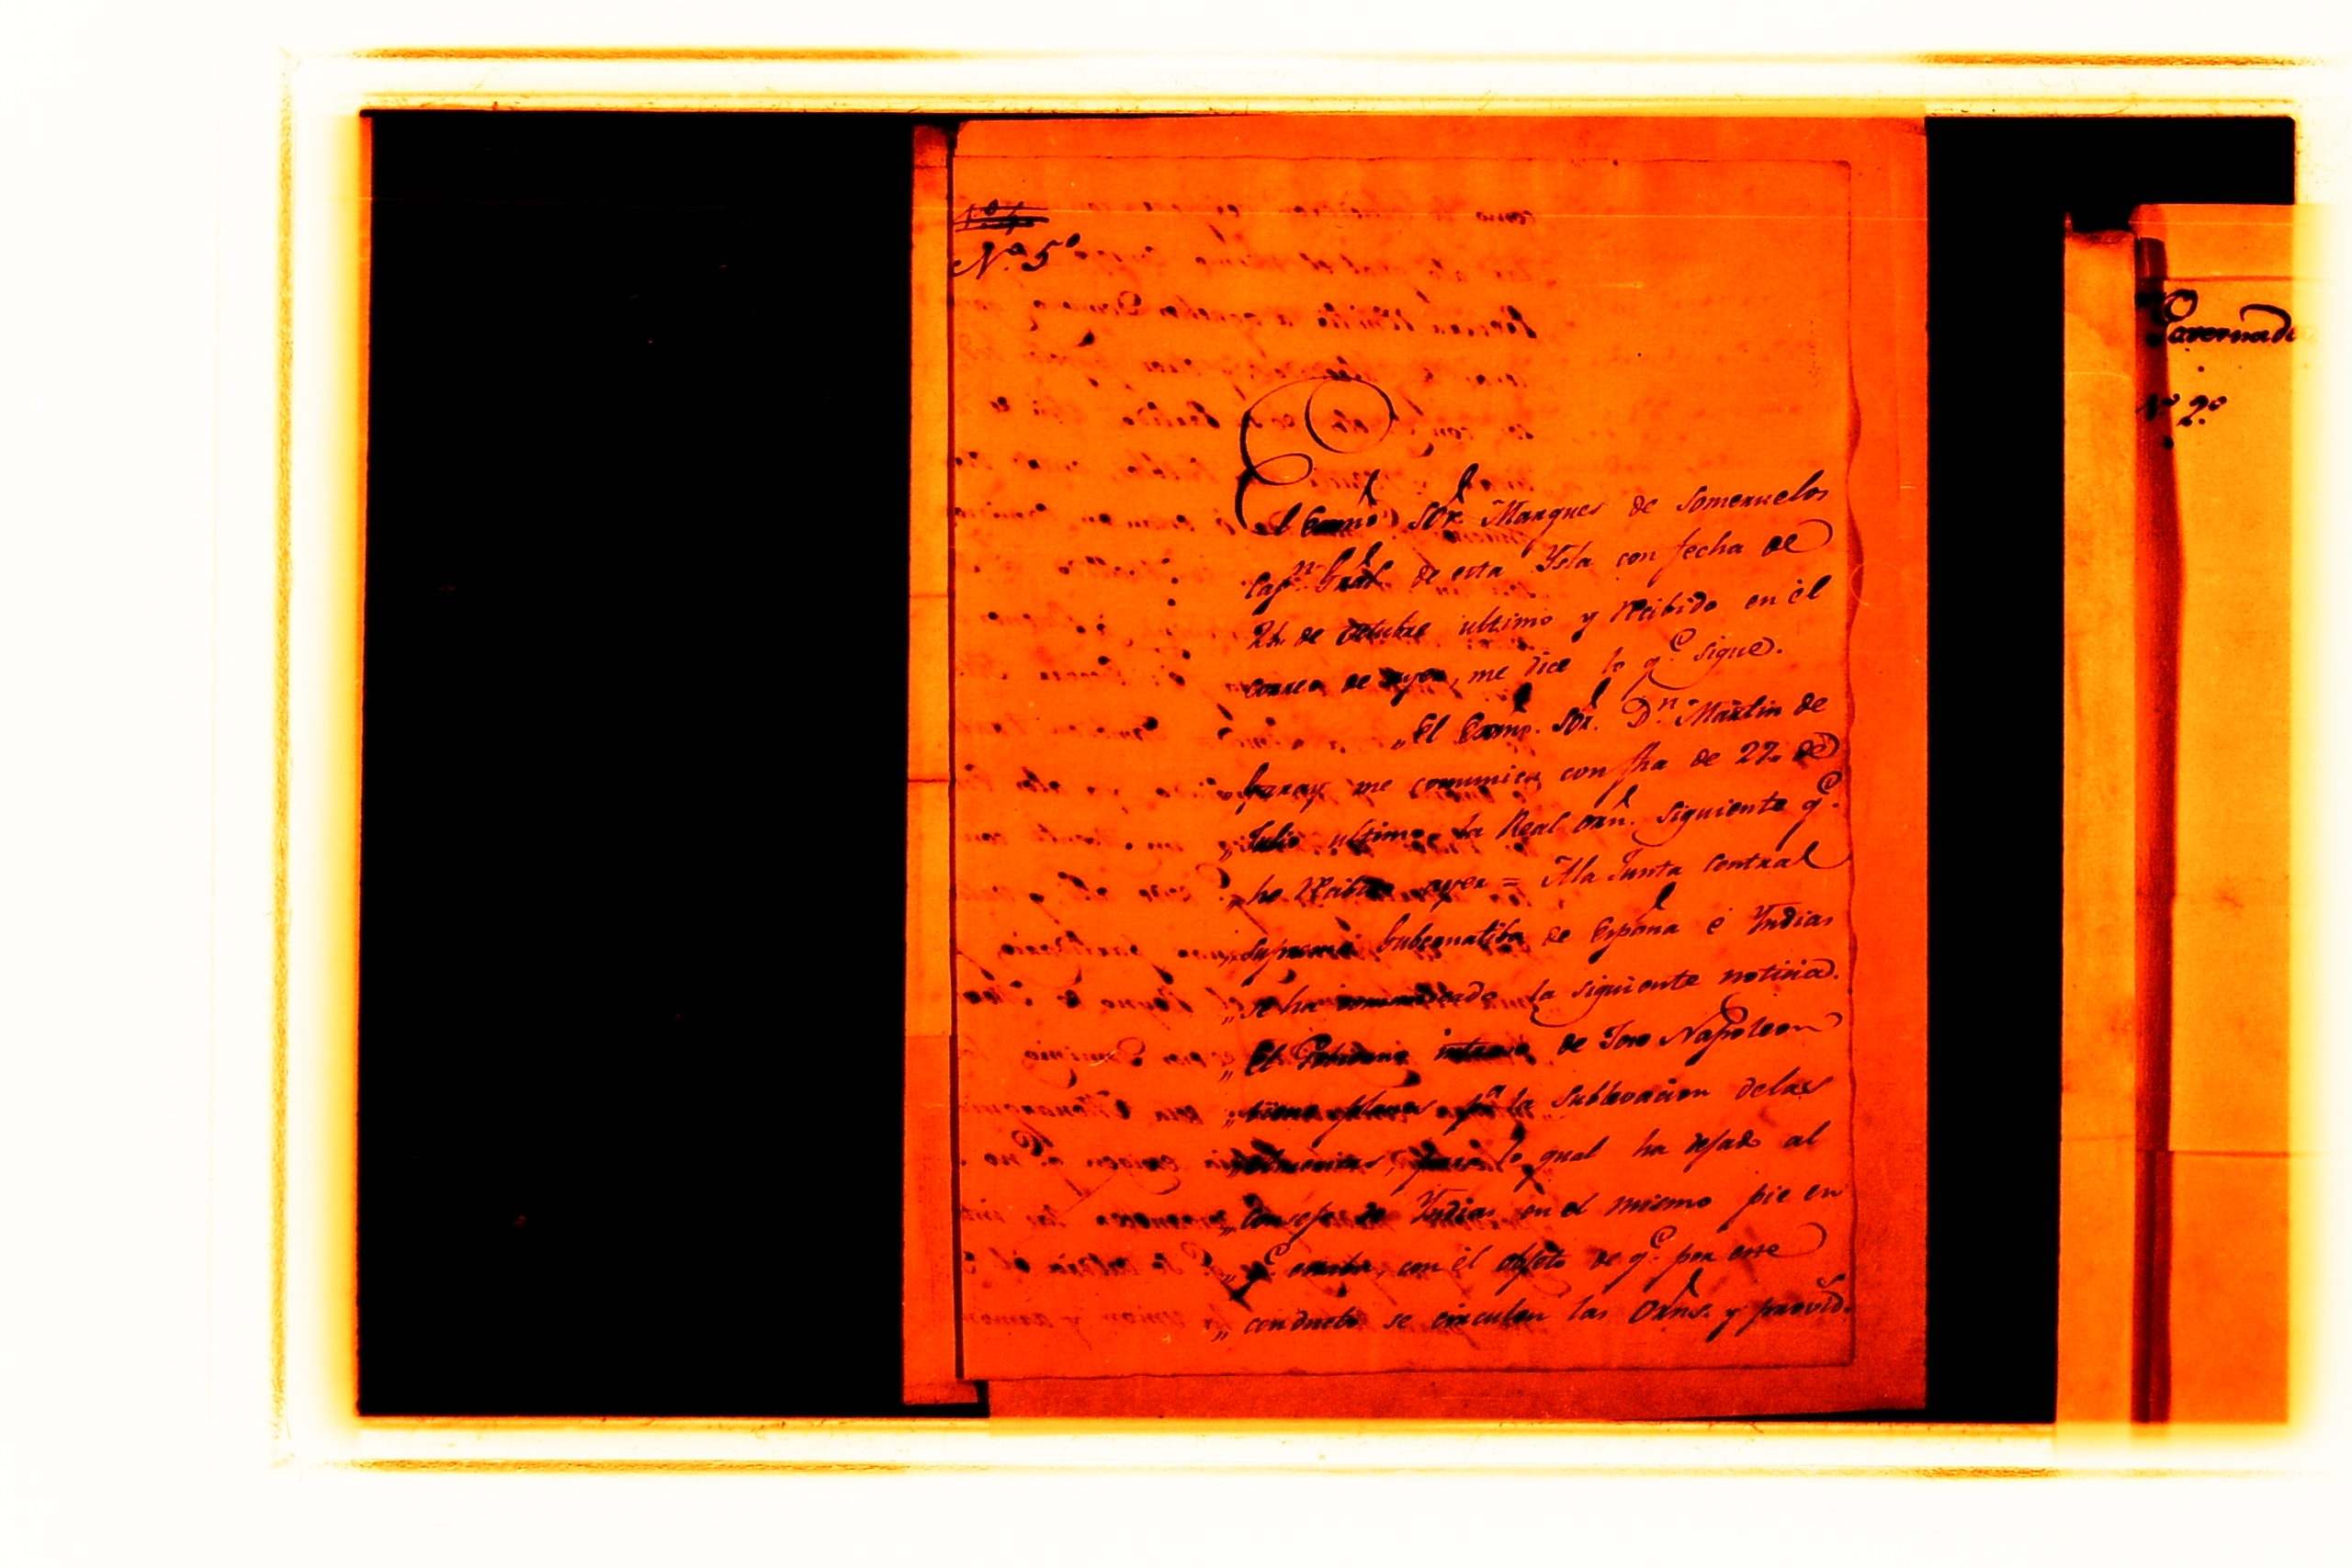 Nº. 5º
El Exmo Sôr. Marques de Someruelos
Capn. Gral de esta Ysla con fecha de
24. de Octubre ultimo y Recibido en el
correo de ayer, me dice lo qe. sigue.
„El Exmo. Sôr. Dn. Martin de
Garay me comunica con fha de 27. de
„Julio ultimo la Real Orñ. siguiente qe.
„he Recibido ayer = Ala Junta Central
„Suprema Gubernatiba de España é Yndias
„se ha comunicado la siguiente noticia.
„El Gobierno intruso de Jose Napoleon
„tiene planes pa. la sublevacion delas
„Americas, para lo qual ha dejado al
„Consejo de Yndias en el mismo pie en
„qe. estaba, con el objeto de qe. por ese
„conducto se circulen las Orñs. y provid.
Governad
Nº 2º